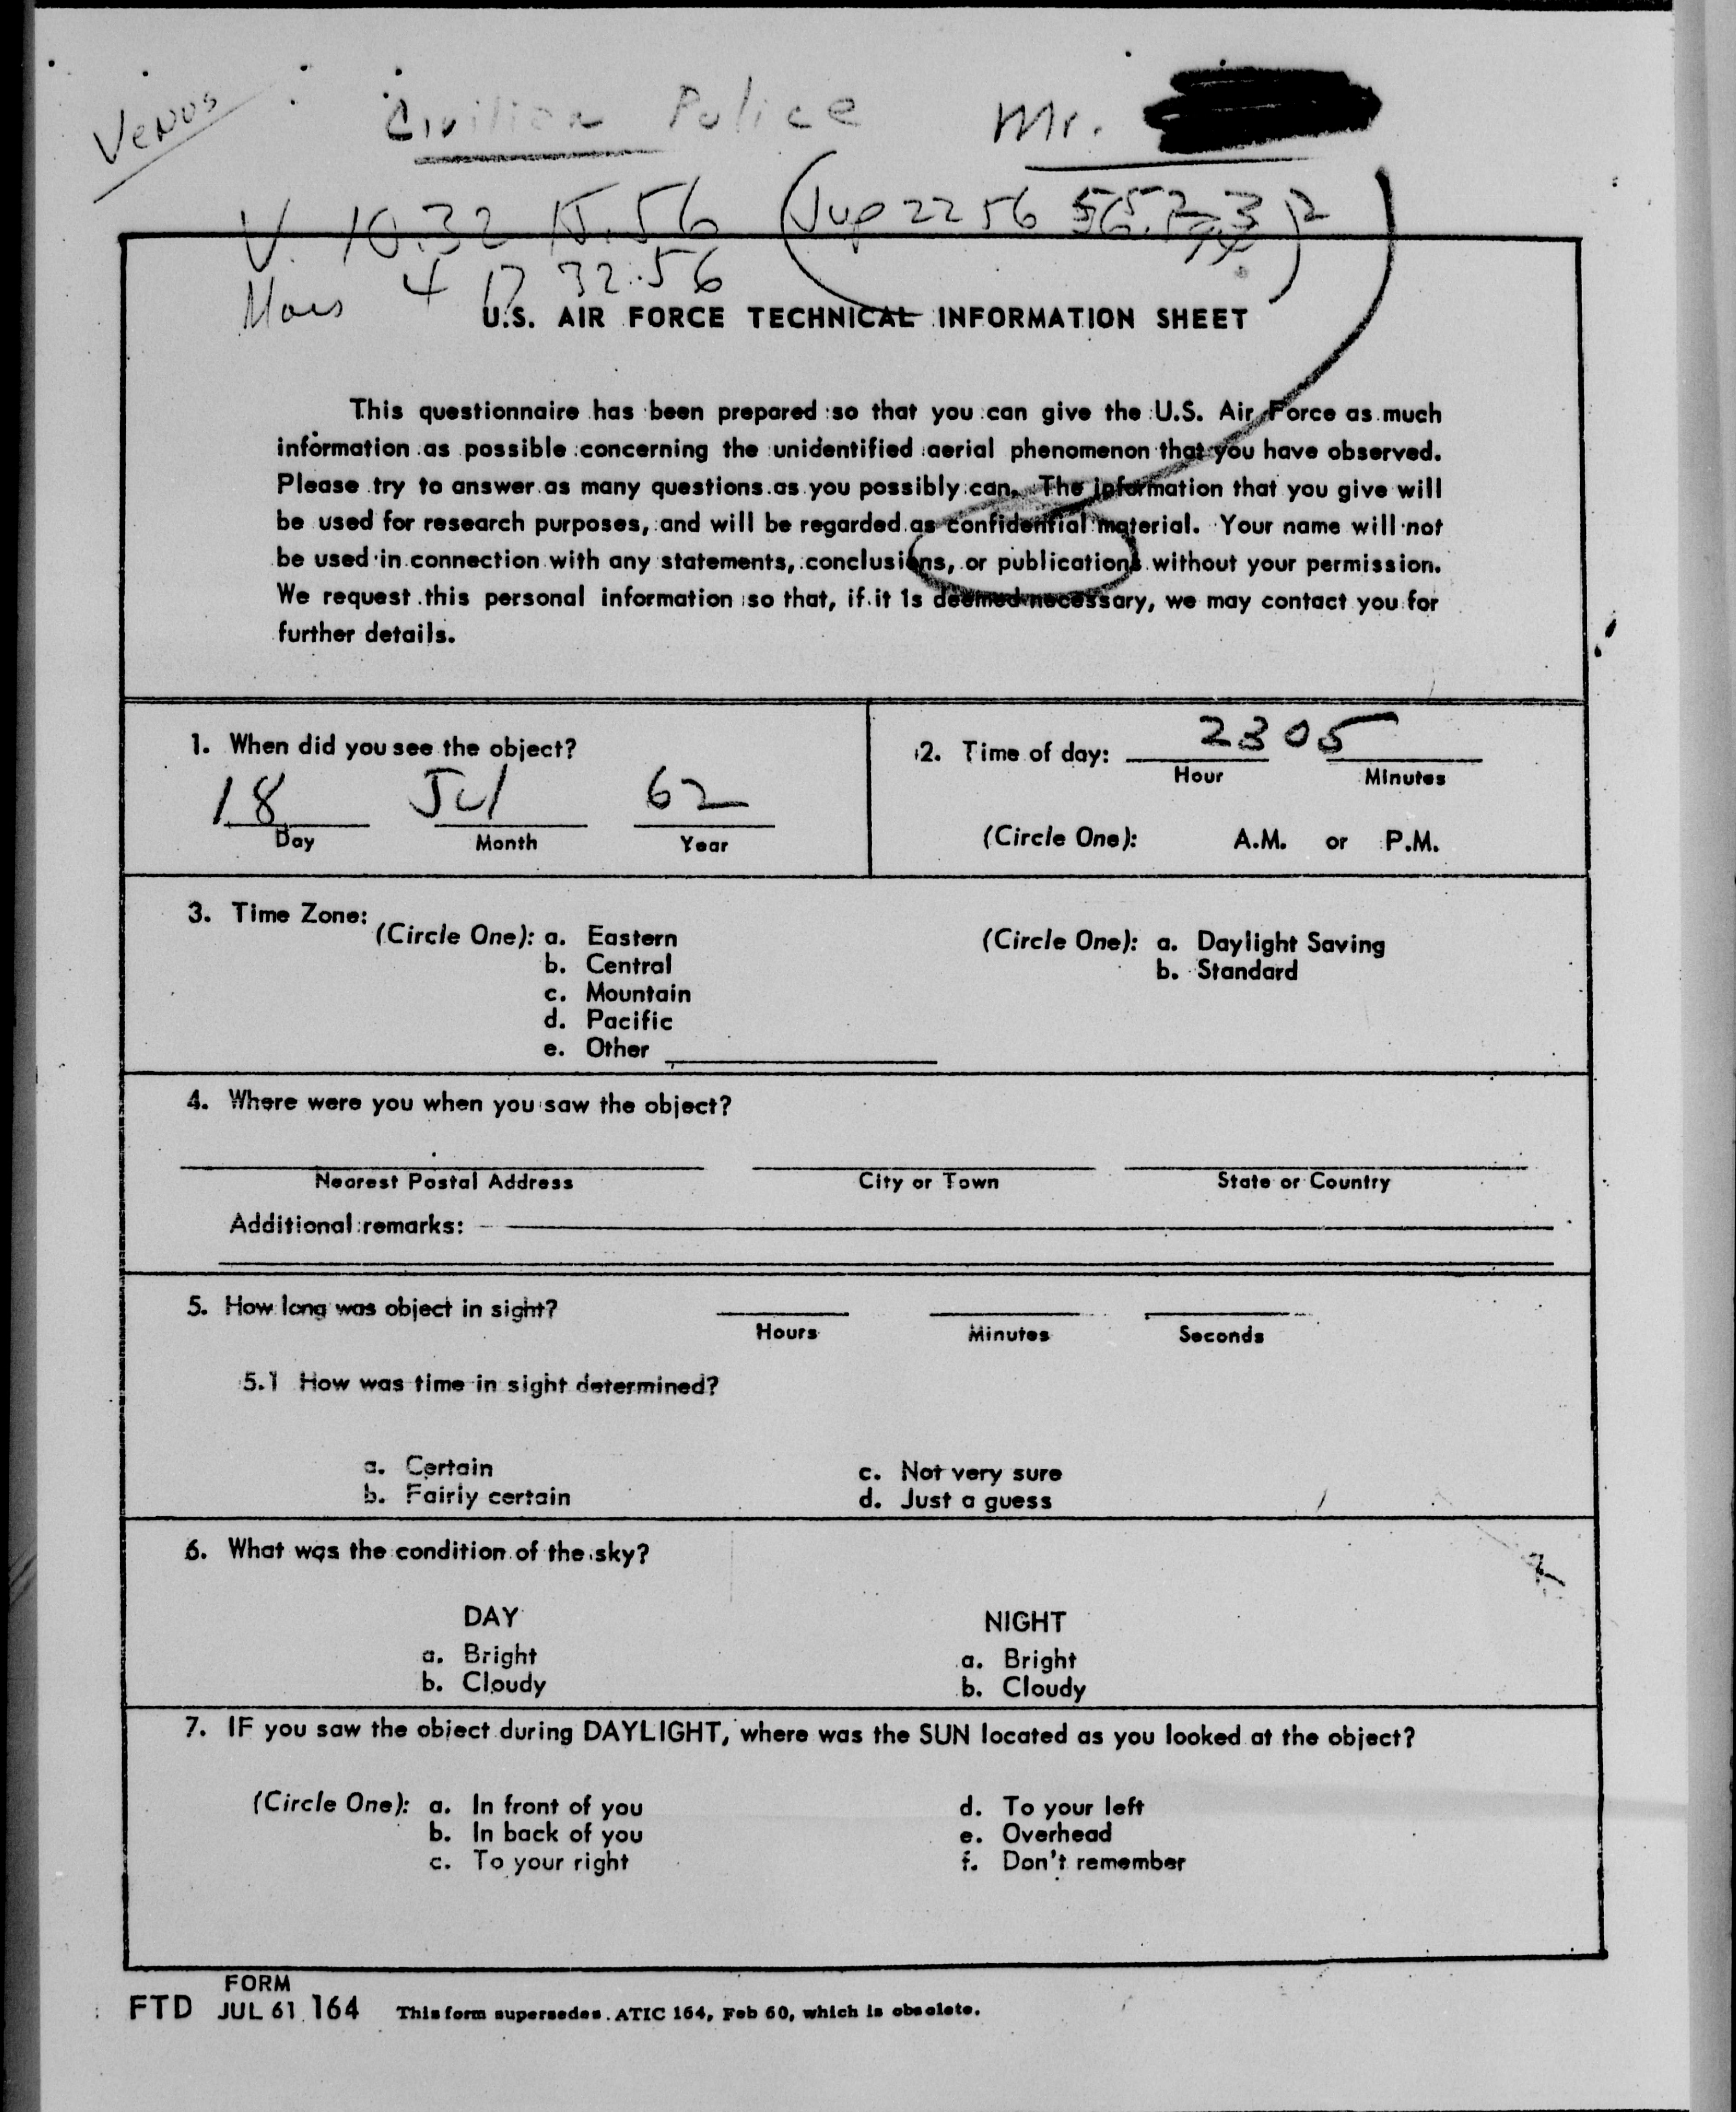 Venus
Civilian Police Mr.
V. 10.32 15.56 (Jup 22 56
Mars 4 17 32.56
U.S. AIR FORCE TECHNICAL INFORMATION SHEET
This questionnaire has been prepared so that you can give the U.S. Air Force as much
information as possible concerning the unidentified aerial phenomenon that you have observed.
Please try to answer as many questions as you possibly can. The information that you give will
be used for research purposes, and will be regarded as confidential material. Your name will not
be used in connection with any statements, conclusions, or publications without your permission.
We request this personal information so that, if it is deemed necessary, we may contact you for
further details.
1. When did you see the object?
18 Jul 62
Day Month Year
2. Time of day: 2305
Hour Minutes
(Circle One): A.M. or P.M.
3. Time Zone:
(Circle One): a. Eastern
b. Central
c. Mountain
d. Pacific
e. Other
(Circle One): a. Daylight Saving
b. Standard
4. Where were you when you saw the object?
Nearest Postal Address City or Town State or Country
Additional remarks:
5. How long was object in sight?
Hours Minutes Seconds
5.1 How was time in sight determined?
a. Certain
b. Fairly certain
c. Not very sure
d. Just a guess
6. What was the condition of the sky?
DAY
a. Bright
b. Cloudy
NIGHT
a. Bright
b. Cloudy
7. IF you saw the object during DAYLIGHT, where was the SUN located as you looked at the object?
(Circle One): a. In front of you
b. In back of you
c. To your right
d. To your left
e. Overhead
f. Don't remember
FORM
FTD JUL 61 164 This form supersedes ATIC 164, Feb 60, which is obsolete.